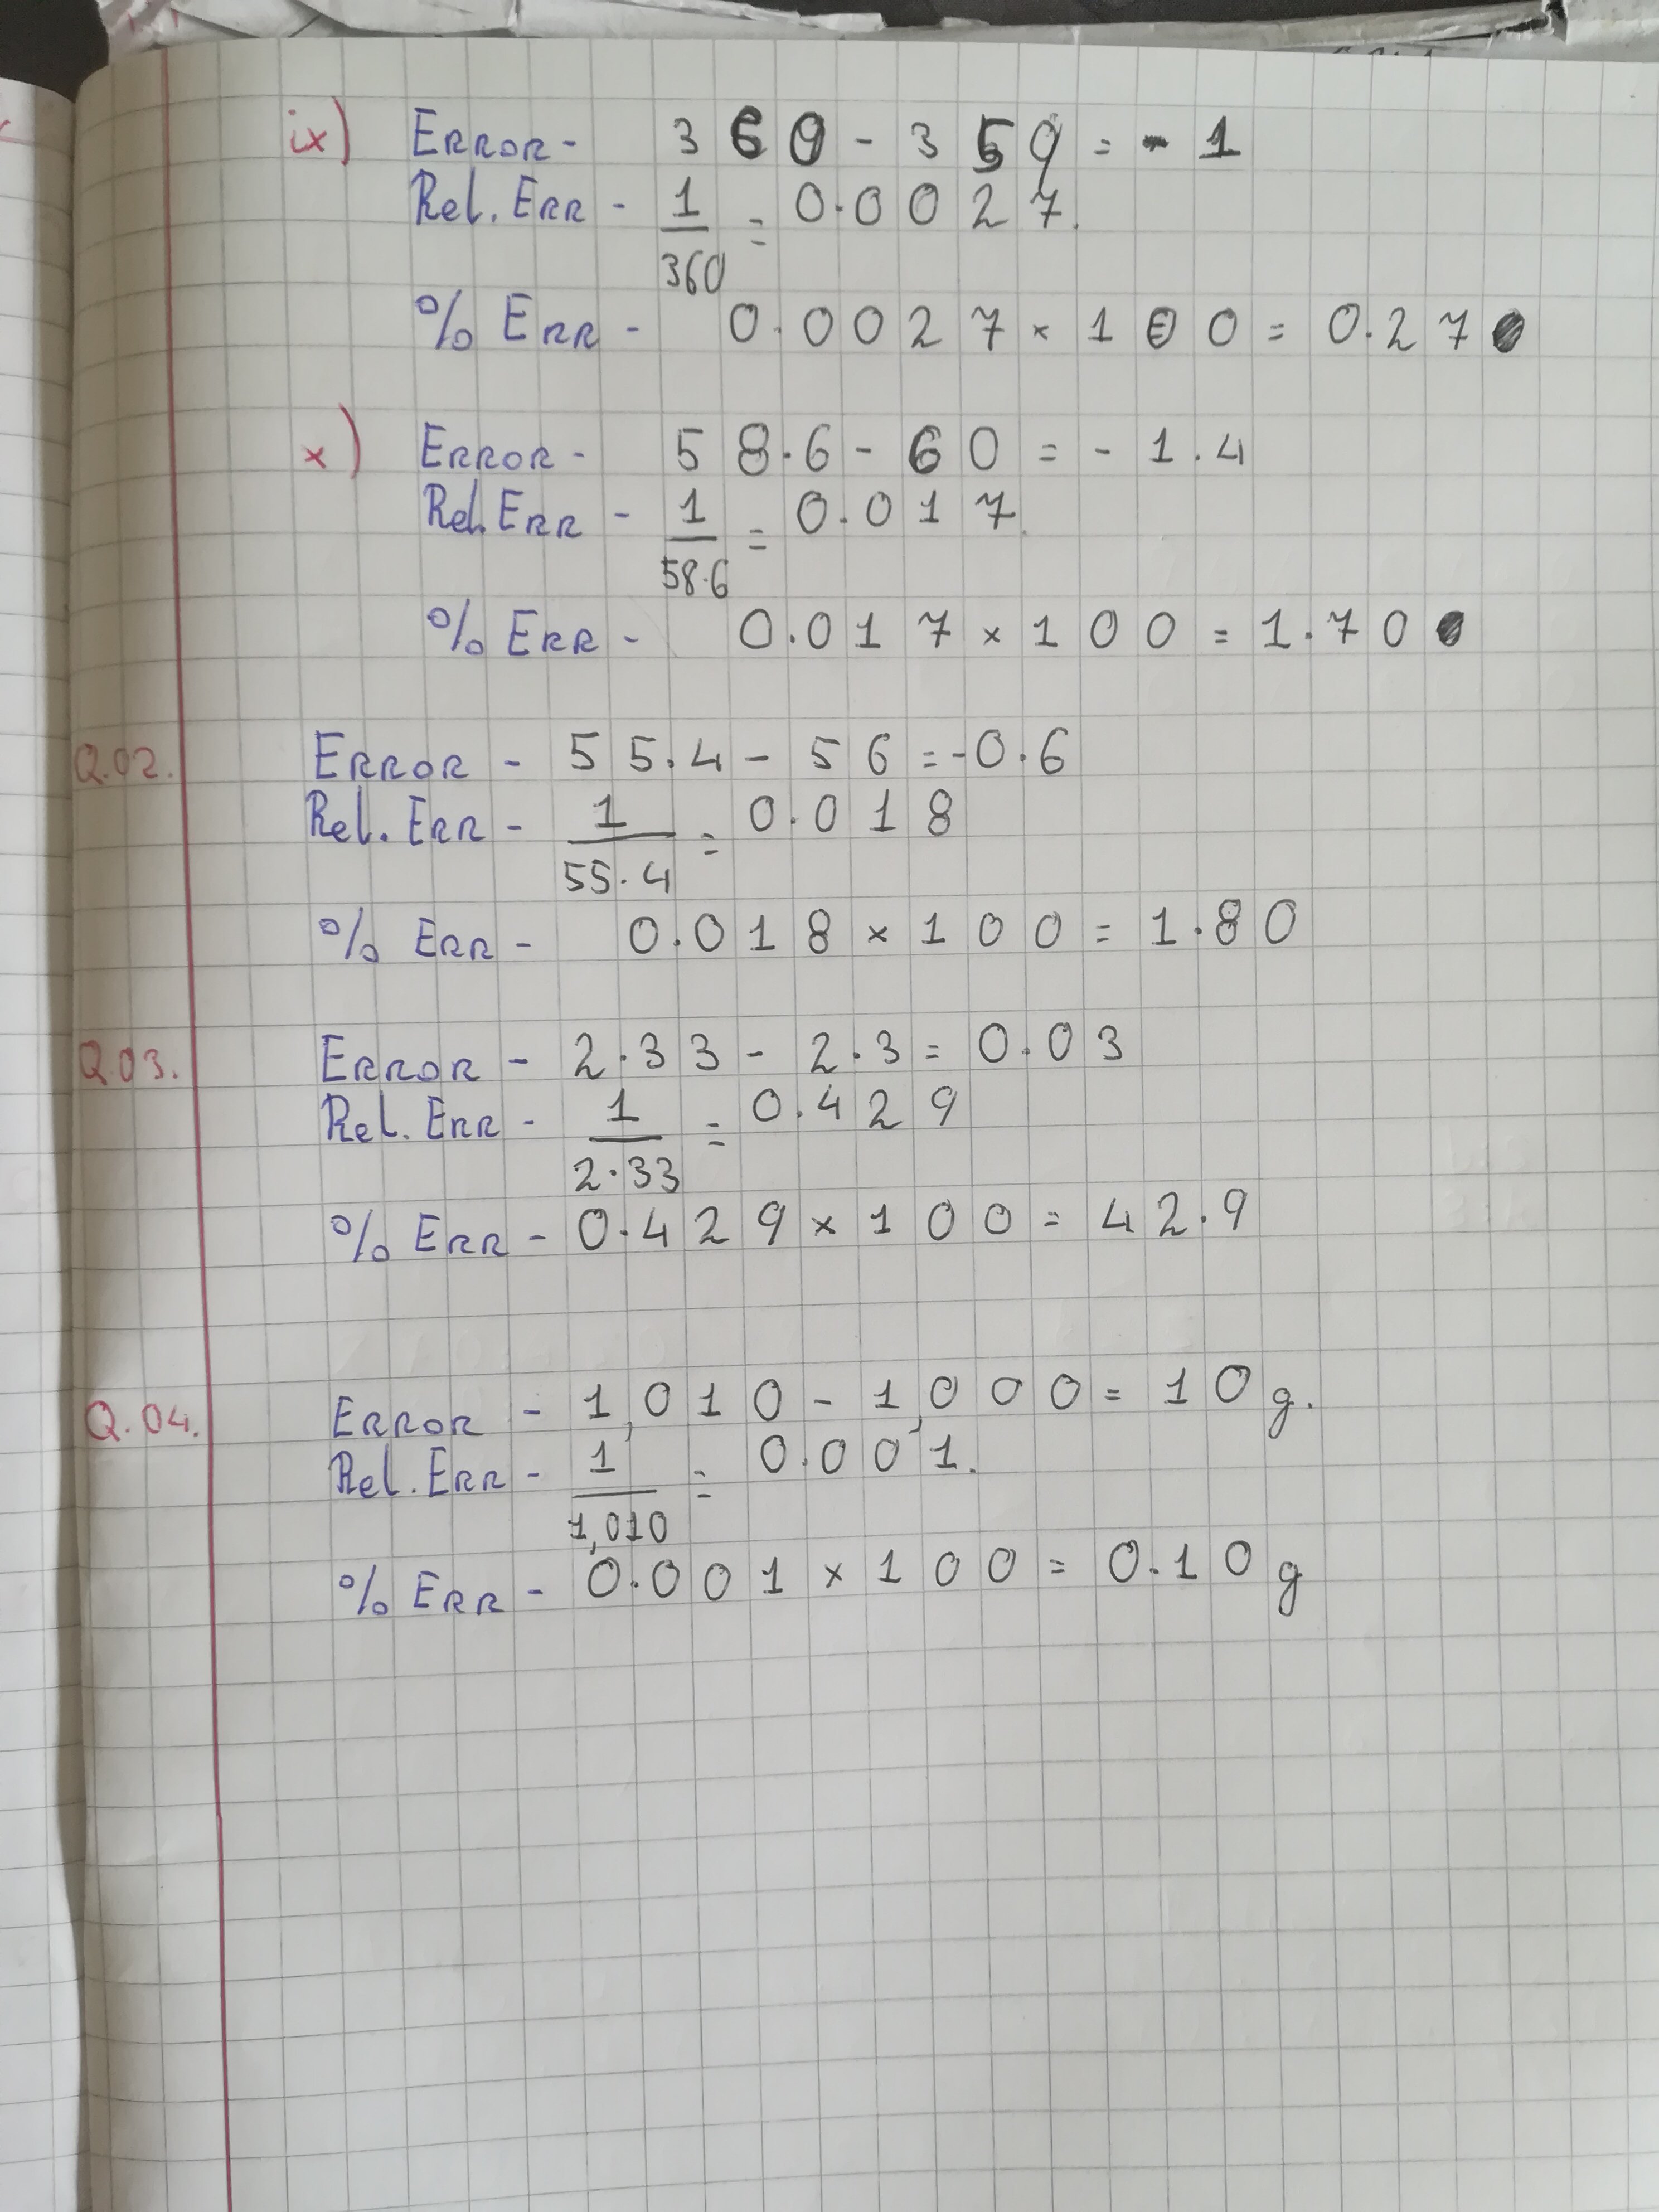 ix) Error - 360 - 359 = - 1
Rel. Err - 1/360 = 0.0027.
% Err - 0.0027 × 100 = 0.27
x) Error - 58.6 - 60 = - 1.4
Rel. Err - 1/58.6 = 0.017.
% Err - 0.017 × 100 = 1.70
Q.02. Error - 55.4 - 56 = -0.6
Rel. Err - 1/55.4 = 0.018
% Err - 0.018 × 100 = 1.80
Q.03. Error - 2.33 - 2.3 = 0.03
Rel. Err - 1/2.33 = 0.429
% Err - 0.429 × 100 = 42.9
Q.04. Error - 1,010 - 1,000 = 10 g.
Rel. Err - 1/1,010 = 0.001.
% Err - 0.001 × 100 = 0.10 g